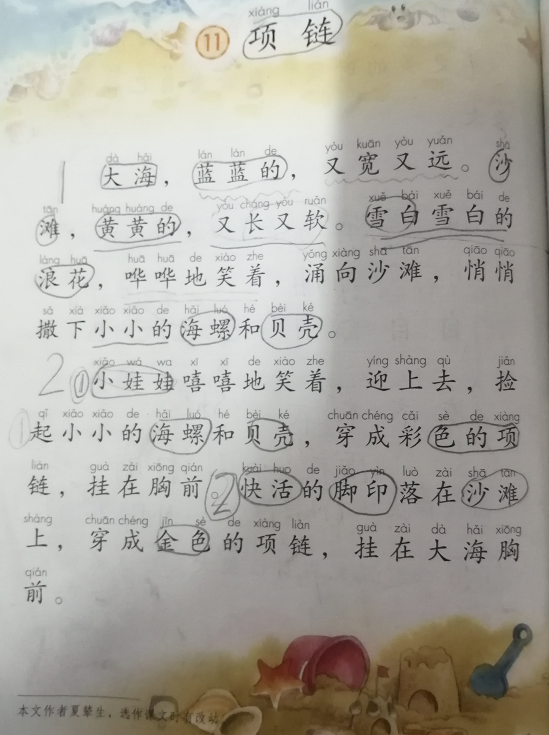 xiàng liàn
11 项链
dà hǎi lán lán de yòu kuān yòu yuǎn shā
1 大海，蓝蓝的，又宽又远。沙
tān huáng huáng de yòu cháng yòu ruǎn xuě bái xuě bái de
滩，黄黄的，又长又软。雪白雪白的
làng huā huā huā de xiào zhe yǒng xiàng shā tān qiāo qiāo
浪花，哗哗地笑着，涌向沙滩，悄悄
sǎ xià xiǎo xiǎo de hǎi luó hé bèi ké
撒下小小的海螺和贝壳。
xiǎo wá wa xī xī de xiào zhe yíng shàng qù jiǎn
2 ① 小娃娃嘻嘻地笑着，迎上去，捡
qǐ xiǎo xiǎo de hǎi luó hé bèi ké chuān chéng cǎi sè de xiàng
① 起小小的海螺和贝壳，穿成彩色的项
liàn guà zài xiōng qián kuài huo de jiǎo yìn luò zài shā tān
链，挂在胸前。2 快活的脚印落在沙滩
shàng chuān chéng jīn sè de xiàng liàn guà zài dà hǎi xiōng
上，穿成金色的项链，挂在大海胸
qián
前。
本文作者夏辇生，选作课文时有改动